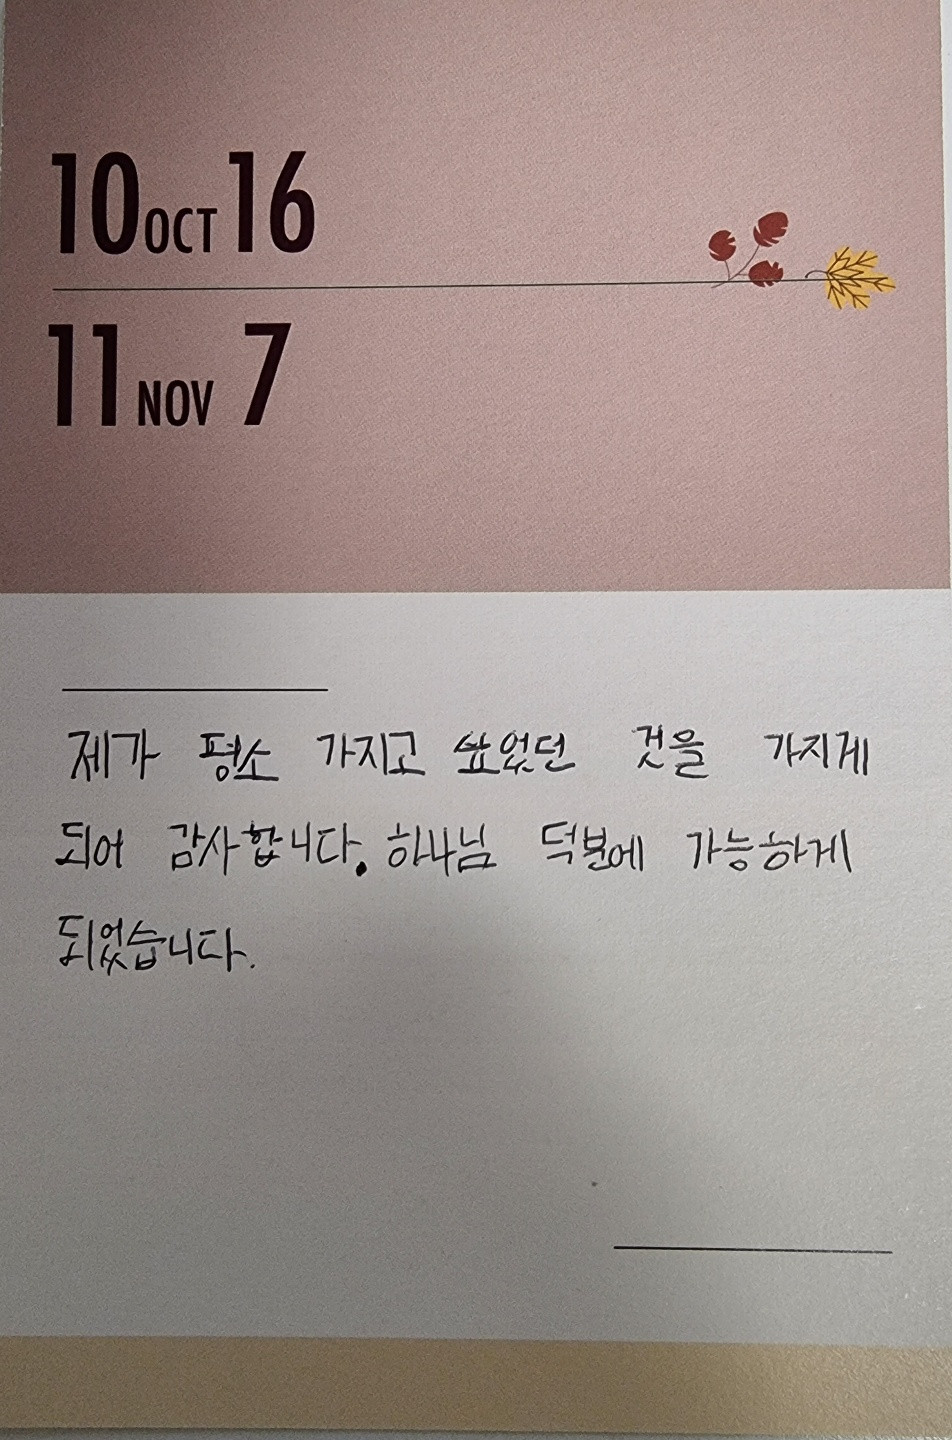 10 OCT 16
11 NOV 7
제가 평소 가지고 싶었던 것을 가지게
되어 감사합니다. 하나님 덕분에 가능하게
되었습니다.